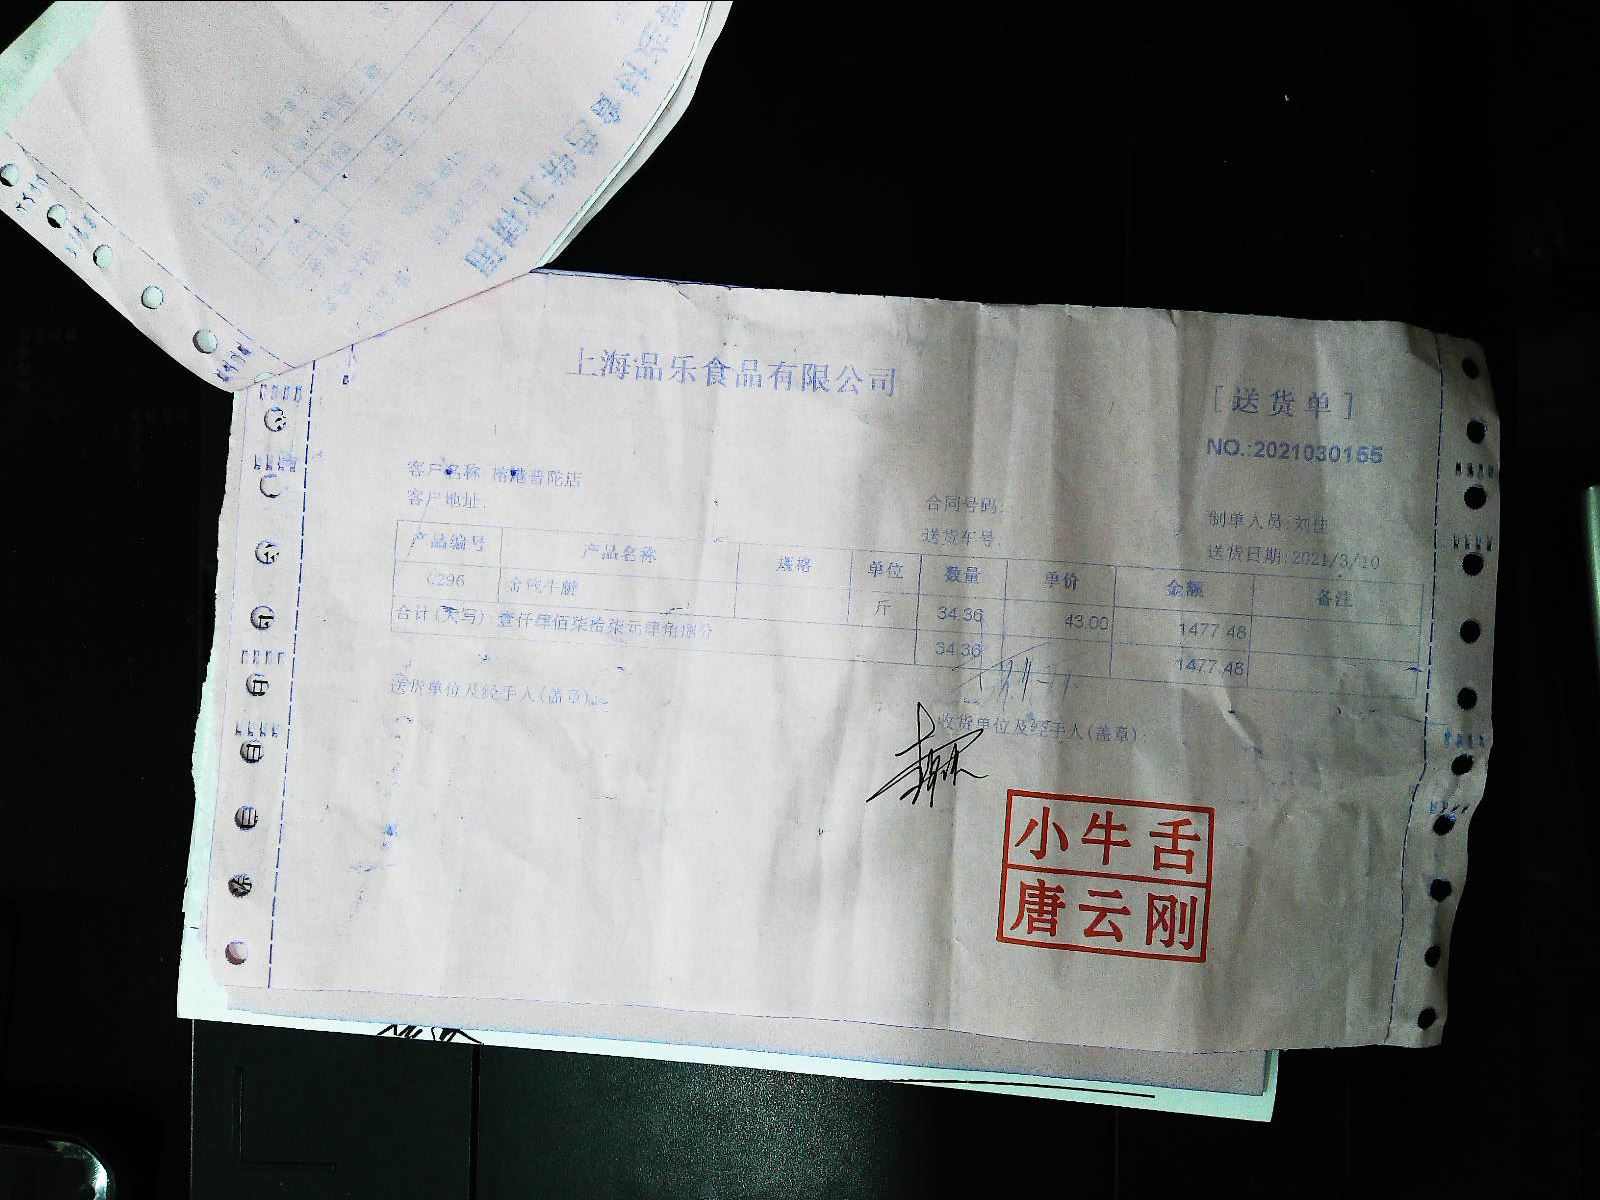 上海品乐食品有限公司
[送货单]
NO.:2021030155
客户名称:榕港普陀店
客户地址:
合同号码:
制单人员:刘佳
送货车号:
送货日期:2021/3/10
产品编号 产品名称 规格 单位 数量 单价 金额 备注
C296 金钱牛腱 斤 34.36 43.00 1477.48
合计(大写):壹仟肆佰柒拾柒元肆角捌分 34.36 1477.48
送货单位及经手人(盖章):
收货单位及经手人(盖章):
小牛舌
唐云刚